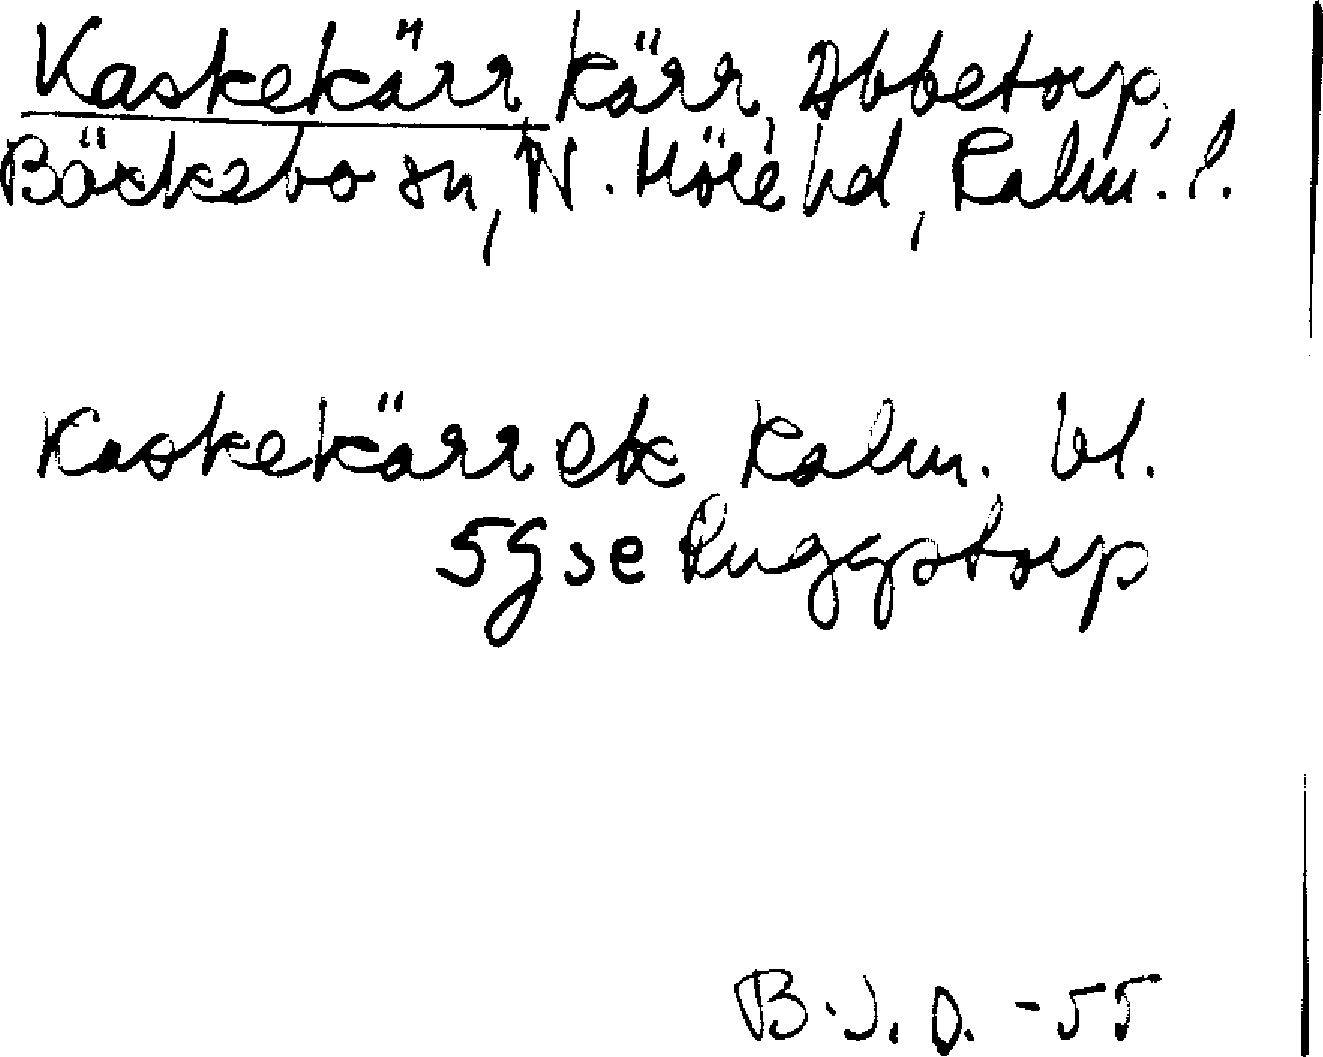 Kaskekärr, kärr, Abbetorp,
Bäckebo sn, N. Möre hd, Kalm. l.
Kaskekärr ek Kalm. bl.
5g se Ruggstorp
B.J.O. -55